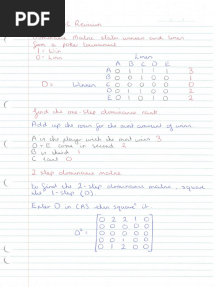 PDF
Dominance Matrix states winners and losers
from a poker tournament
1 = Win
0 = Loss
Losers
A B C D E
A 0 1 1 1 3
B 0 0 1 0 0 1
D = Winners C 0 0 0 0 0 0
D 0 1 1 0 0 2
E 0 1 0 1 0 2
find the one-step dominance rank
Add up the rows for the most amount of wins.
A is the player with the most wins 3
D + E come in second 2
B is third 1
C last 0
2 step dominance matrix
to find the 2-step dominance matrix, square
the 1-step (D).
Enter D in CAS then square it.
0 2 2 1 0
0 0 0 0 0
D² = 0 0 0 0 0
0 0 1 0 0
0 1 2 0 0